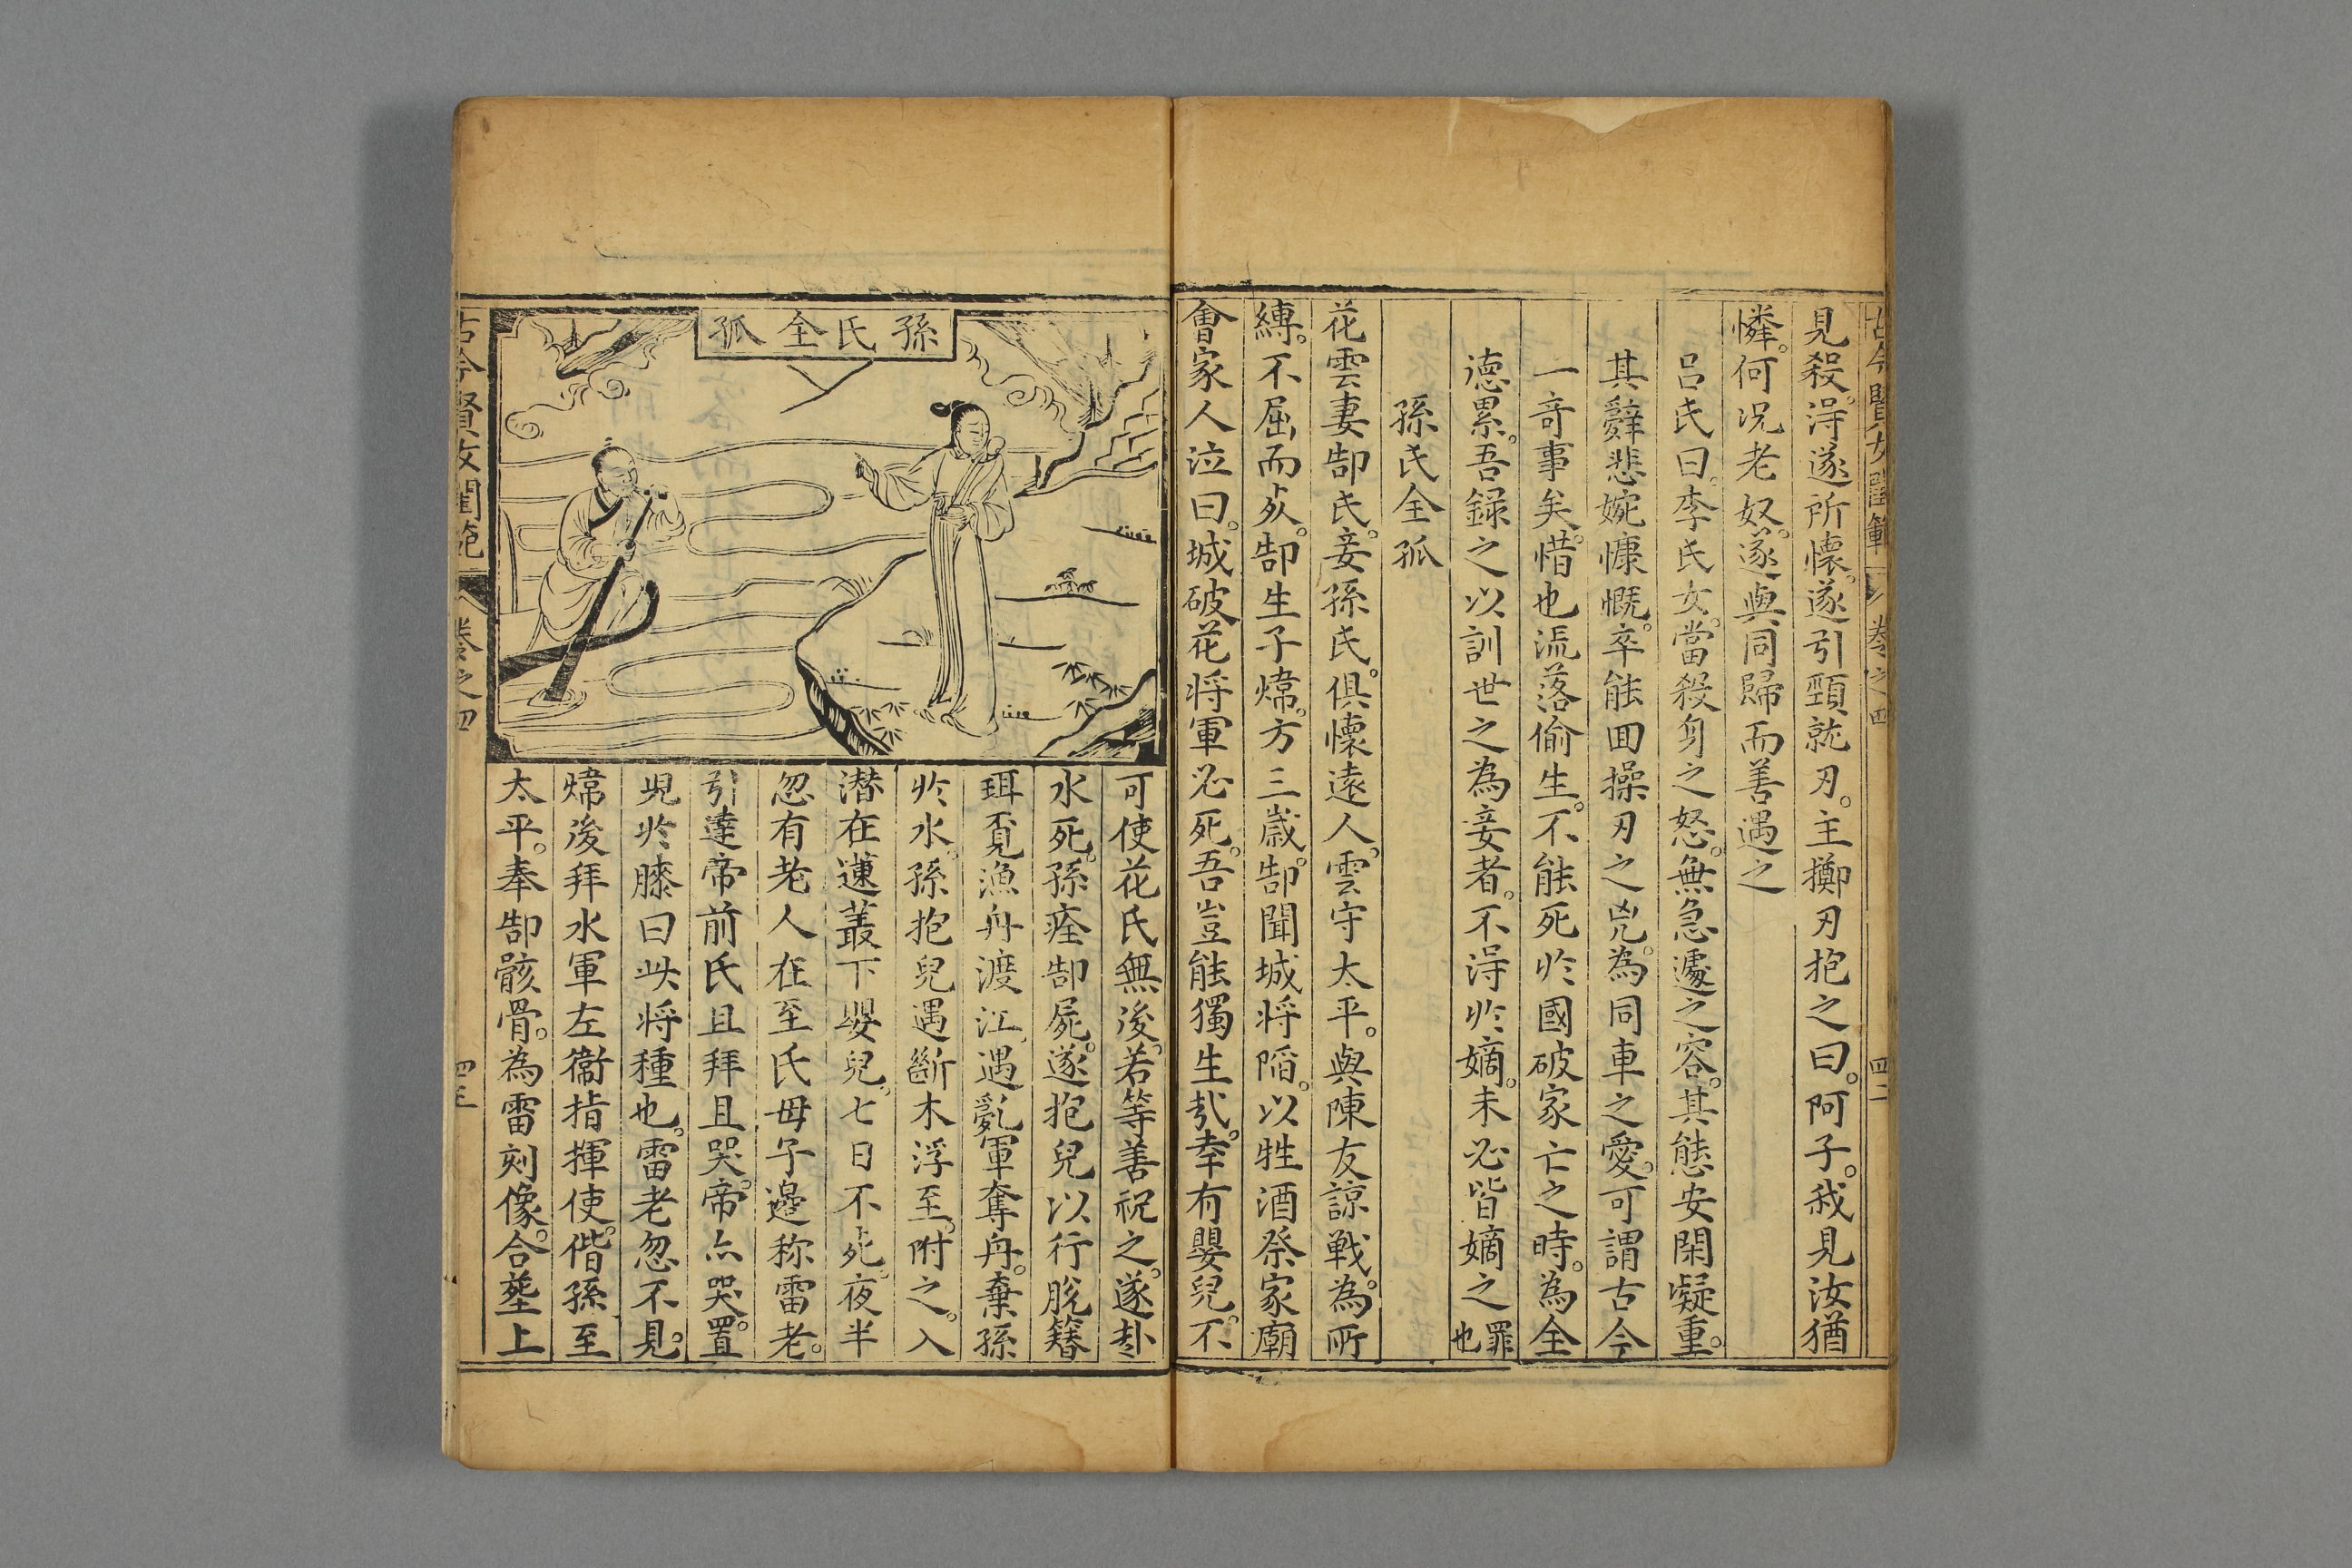 古今賢女閨範 卷之四 四二
見殺。得遂所懷。遂引頸就刃。主擲刃抱之曰。阿子。我見汝猶
憐。何况老奴。遂與同歸而善遇之
呂氏曰。李氏女。當殺身之怒。無急遽之容。其態安閑凝重。
其辭悲婉慷慨。卒能囬操刃之兇。為同車之愛。可謂古今
一竒事矣。惜也流落偷生。不能死扵國破家亡之時。為全
德累。吾録之以訓世之為妾者。不得扵嫡。未必皆嫡之罪也
孫氏全孤
花雲妻郜氏。妾孫氏。俱懷遠人。雲守太平。與陳友諒戦。為所
縛。不屈而死。郜生子煒。方三歲。郜聞城将陷。以牲酒祭家廟
會家人泣曰。城破花将軍必死。吾豈能獨生㦲。幸有嬰兒。不
孫氏全孤
可使花氏無後。若等善視之。遂赴
水死。孫瘞郜屍。遂抱兒以行脫簪
珥覔漁舟渡江。遇亂軍奪舟。棄孫
扵水。孫抱兒遇斷木浮至。附之。入
潜在蓮叢下嬰兒。七日不死。夜半
忽有老人在至氏母子邊称雷老。
引達帝前氏且拜且哭。帝亦哭。置
兒扵膝曰此将種也。雷老忽不見。
煒後拜水軍左衞指揮使。偕孫至
太平。奉郜骸骨。為雷刻像。合塟上
古今賢女閨範 卷之四 四三